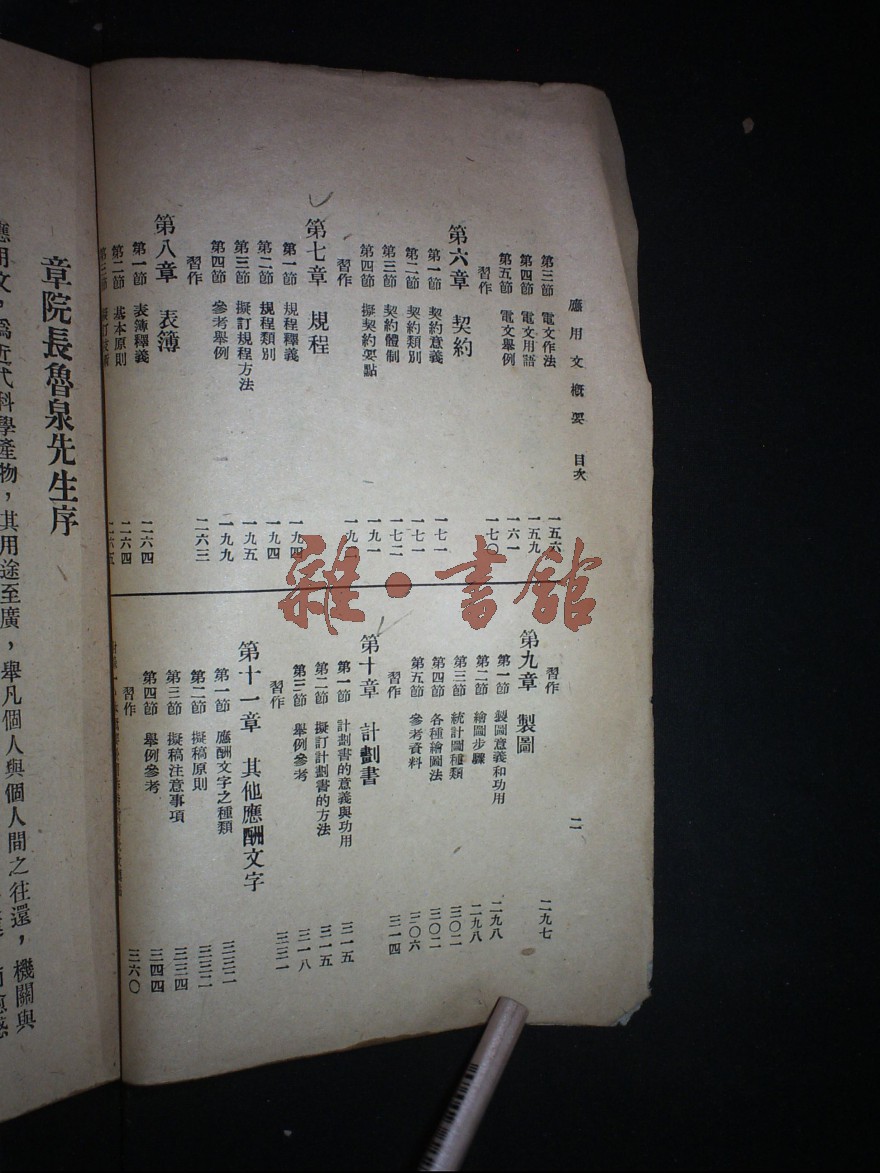 應用文概要 目次
二
第三節 電文作法 一五六
第四節 電文用語 一五九
第五節 電文舉例 一六一
習作 一七〇
第六章 契約
第一節 契約意義 一七一
第二節 契約類別 一七一
第三節 契約體制 一七二
第四節 擬契約要點 一九一
習作
第七章 規程
第一節 規程釋義 一九四
第二節 規程類別 一九四
第三節 擬訂規程方法 一九五
第四節 參考舉例 一九九
習作 二六三
第八章 表簿
第一節 表簿釋義 二六四
第二節 基本原則 二六四
第三節 二六五
習作 二九七
第九章 製圖
第一節 製圖意義和功用 二九八
第二節 繪圖步驟 二九八
第三節 統計圖種類 三〇二
第四節 各種繪圖法 三〇二
第五節 參考資料 三〇六
習作 三一四
第十章 計劃書
第一節 計劃書的意義與功用 三一五
第二節 擬訂計劃書的方法 三一五
第三節 舉例參考 三一八
習作 三三一
第十一章 其他應酬文字
第一節 應酬文字之種類 三三二
第二節 擬稿原則 三三二
第三節 擬稿注意事項 三三四
第四節 舉例參考 三四四
習作 三六〇
章院長魯泉先生序
應用文，爲近代科學產物，其用途至廣，舉凡個人與個人間之往還，機關與
雜·書館